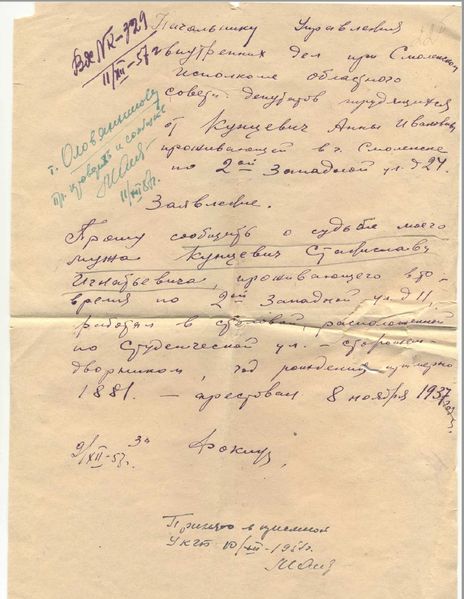 Вх № К-329
11/XII-57г
Начальнику Управления
внутренних дел при Смоленском
исполкоме областного
совета депутатов трудящихся
от Кунцевич Анны Ивановны
проживающей в г. Смоленске
по 2ой Западной ул. д 27.
т.
пр. проверить и сообщить
11/XII 57г.
Заявление.
Прошу сообщить о судьбе моего
мужа Кунцевич Станислава
Игнатьевича, проживающего в то
время по 2ой Западной ул д 11,
работал в столовой, расположенной
по Студенческой ул. – сторожем
дворником, год рождения примерно
1881. – арестован 8 ноября 1937 года.
9/XII-57. За
Принято в приемной
УКГБ 10/XII-1957г.